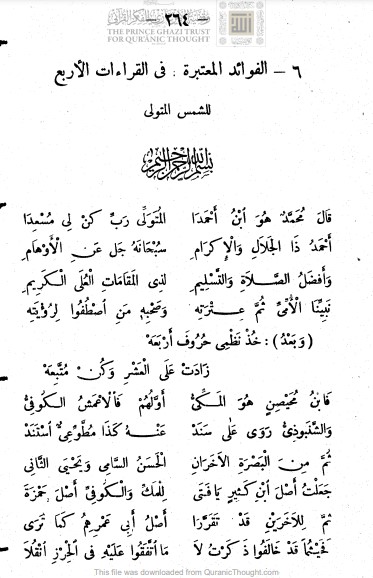 - ٣٦٤ -
THE PRINCE GHAZI TRUST
FOR QURANIC THOUGHT
٦ - الفوائد المعتبرة : فى القراءات الأربع
للشمس المتولى
بسم الله الرحمن الرحيم
قَالَ مُحَمَّدٌ هُوَ ابْنُ أَحْمَدَا الْمُتَوَلِّى رَبِّ كُنْ لِى مُسْعِدَا
أَحْمَدُ ذَا الْجَلَالِ وَالْإِكْرَامِ سُبْحَانَهُ جَلَّ عَنِ الْأَوْهَامِ
وَأَفْضَلُ الصَّلَاةِ وَالتَّسْلِيمِ لِذِى الْمَقَامَاتِ الْعُلَى الْكَرِيمِ
نَبِيِّنَا الْأُمِّىِّ ثُمَّ عِتْرَتِهِ وَصَحْبِهِ مَنِ اصْطُفُوا لِرُؤْيَتِهِ
(وَبَعْدُ) : خُذْ نَظْمِى حُرُوفَ أَرْبَعَهْ
زَادَتْ عَلَى الْعَشْرِ وَكُنْ مُتَّبِعَهْ
فَابْنُ مُحَيْصِنٍ هُوَ الْمَكِّىُّ أَوَّلُهُمْ فَالْأَعْمَشُ الْكُوفِىُّ
وَالشَّنَبُوذِىُّ رَوَى عَلَى سَنَدْ عَنْهُ كَذَا مُطَّوِّعِىٌّ اسْتَنَدْ
ثُمَّ مِنَ الْبَصْرَةِ الْآخَرَانِ الْحَسَنُ السَّامِى وَيَحْيَى الثَّانِى
جَعَلْتُ أَصْلَ ابْنِ كَثِيرٍ يَا فَتَى لِلْمَكِّ وَالْكُوفِىِّ أَصْلَ حَمْزَةَ
ثُمَّ لِلْآخَرَيْنِ قَدْ تَقَرَّرَا أَصْلُ أَبِى عَمْرِهِمُ كَمَا تَرَى
فَحَيْثُمَا قَدْ خَالَفُوا ذَكَرْتُ لَا مَا اتَّفَقُوا عَلَيْهِ فِى الْحِرْزِ انْقُلَا
This file was downloaded from QuranicThought.com